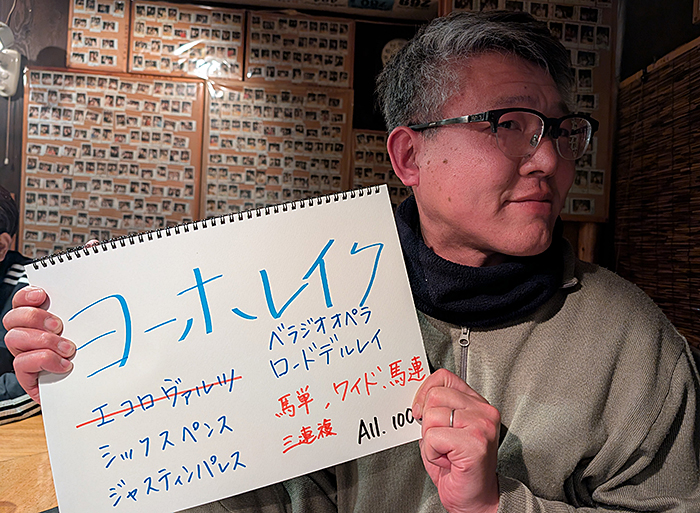 ヨーホーレイク
ベラジオオペラ
ロードデルレイ
エコロヴァルツ
シックスペンス
ジャスティンパレス
馬単、ワイド、馬連
三連複
All. 100